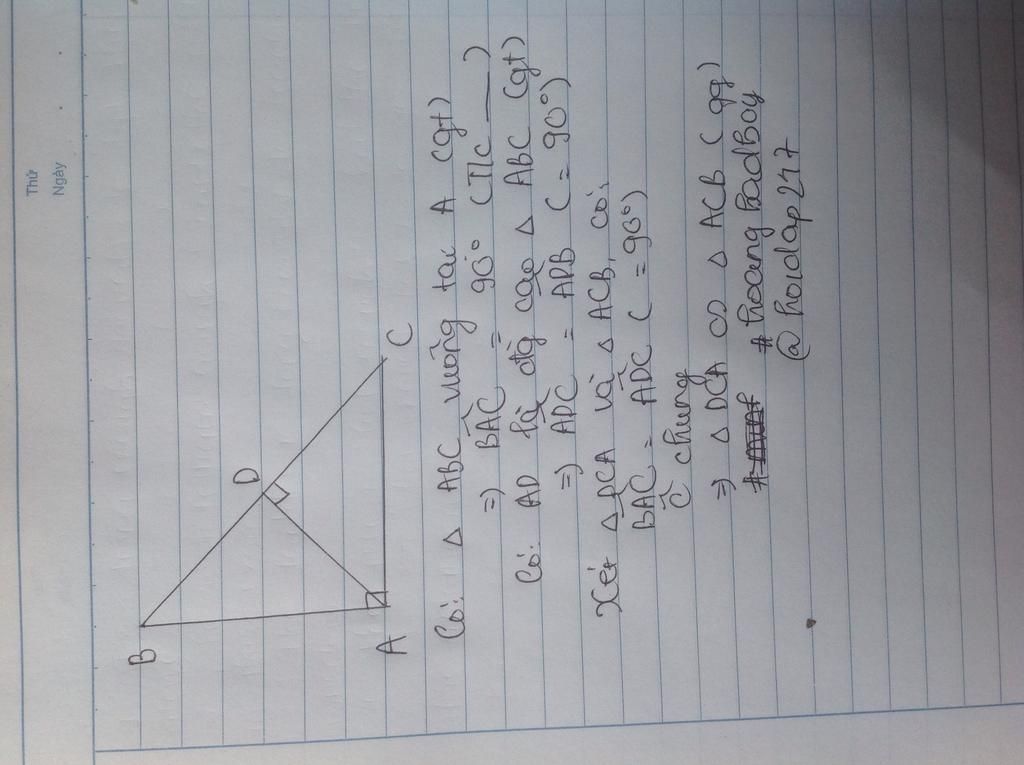 Thứ
Ngày
B
D
A
C
Có: Δ ABC vuông tại A (gt)
=> BÂC = 90° (T/c ___)
Có: AD là đg cao Δ ABC (gt)
=> ADC = ADB (= 90°)
Xét Δ DCA và Δ ACB, có:
BAC = ADC (= 90°)
Ĉ chung
=> Δ DCA ∽ Δ ACB (gg)
# hoang badboy
@ hoidap247